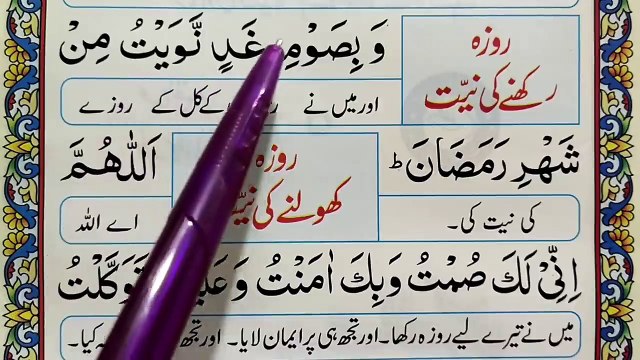 روزہ
رکھنے کی نیّت
وَ بِصَوْمِ غَدٍ نَّوَيْتُ مِنْ
اور میں نے کے کل کے روزے
شَهْرِ رَمَضَانَ ؕ
روزہ
کھولنے کی
اَللّٰهُمَّ
کی نیت کی۔
اے اللہ
اِنِّىْ لَكَ صُمْتُ وَبِكَ اٰمَنْتُ
میں نے تیرے لیے روزہ رکھا۔ اور تجھ ہی پر ایمان لایا۔ اور تجھ کیا۔